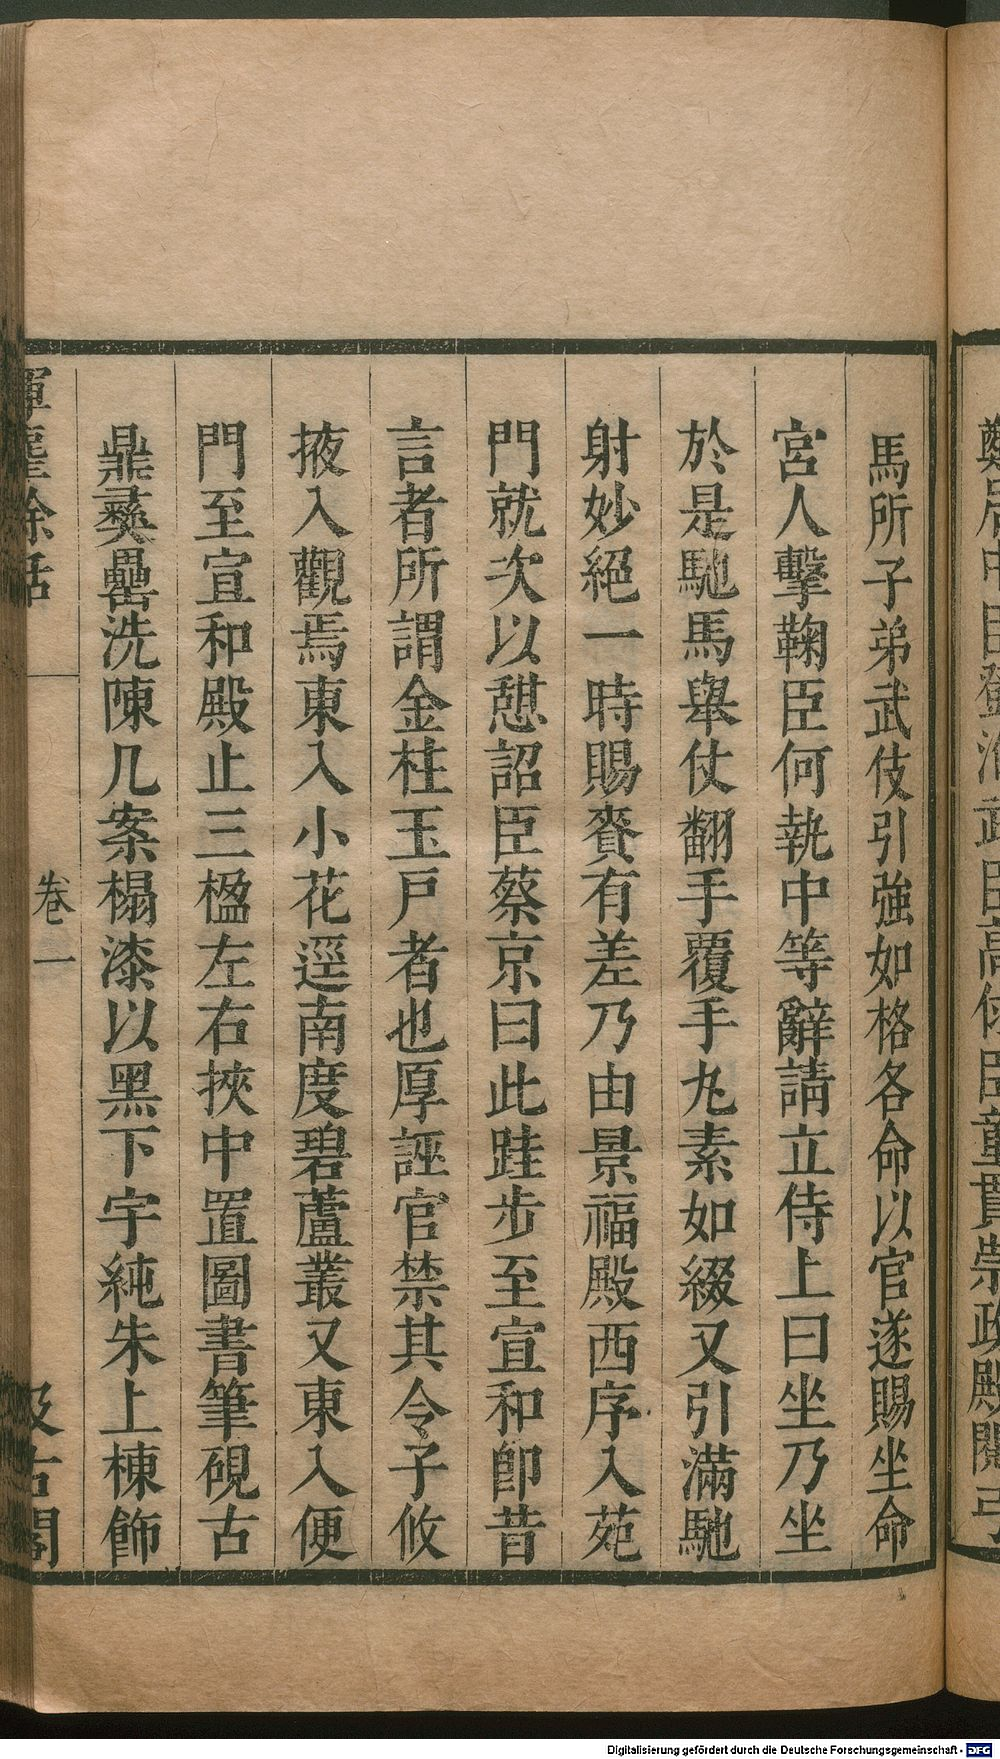 馬所子弟武伎引強如格各命以官遂賜坐命
宮人擊鞠臣何執中等辭請立侍上曰坐乃坐
於是馳馬舉仗翻手覆手丸素如綴又引滿馳
射妙絕一時賜賚有差乃由景福殿西序入苑
門就次以憩詔臣蔡京曰此跬步至宣和卽昔
言者所謂金柱玉戸者也厚誣官禁其令子攸
掖入觀焉東入小花逕南度碧蘆叢又東入便
門至宣和殿止三楹左右挾中置圖書筆硯古
鼎彝罍洗陳几案榻漆以黑下宇純朱上棟飾
揮麈餘話
卷一
汲古閣
臣童貫崇政殿閱弓
Digitalisierung gefördert durch die Deutsche Forschungsgemeinschaft - DFG